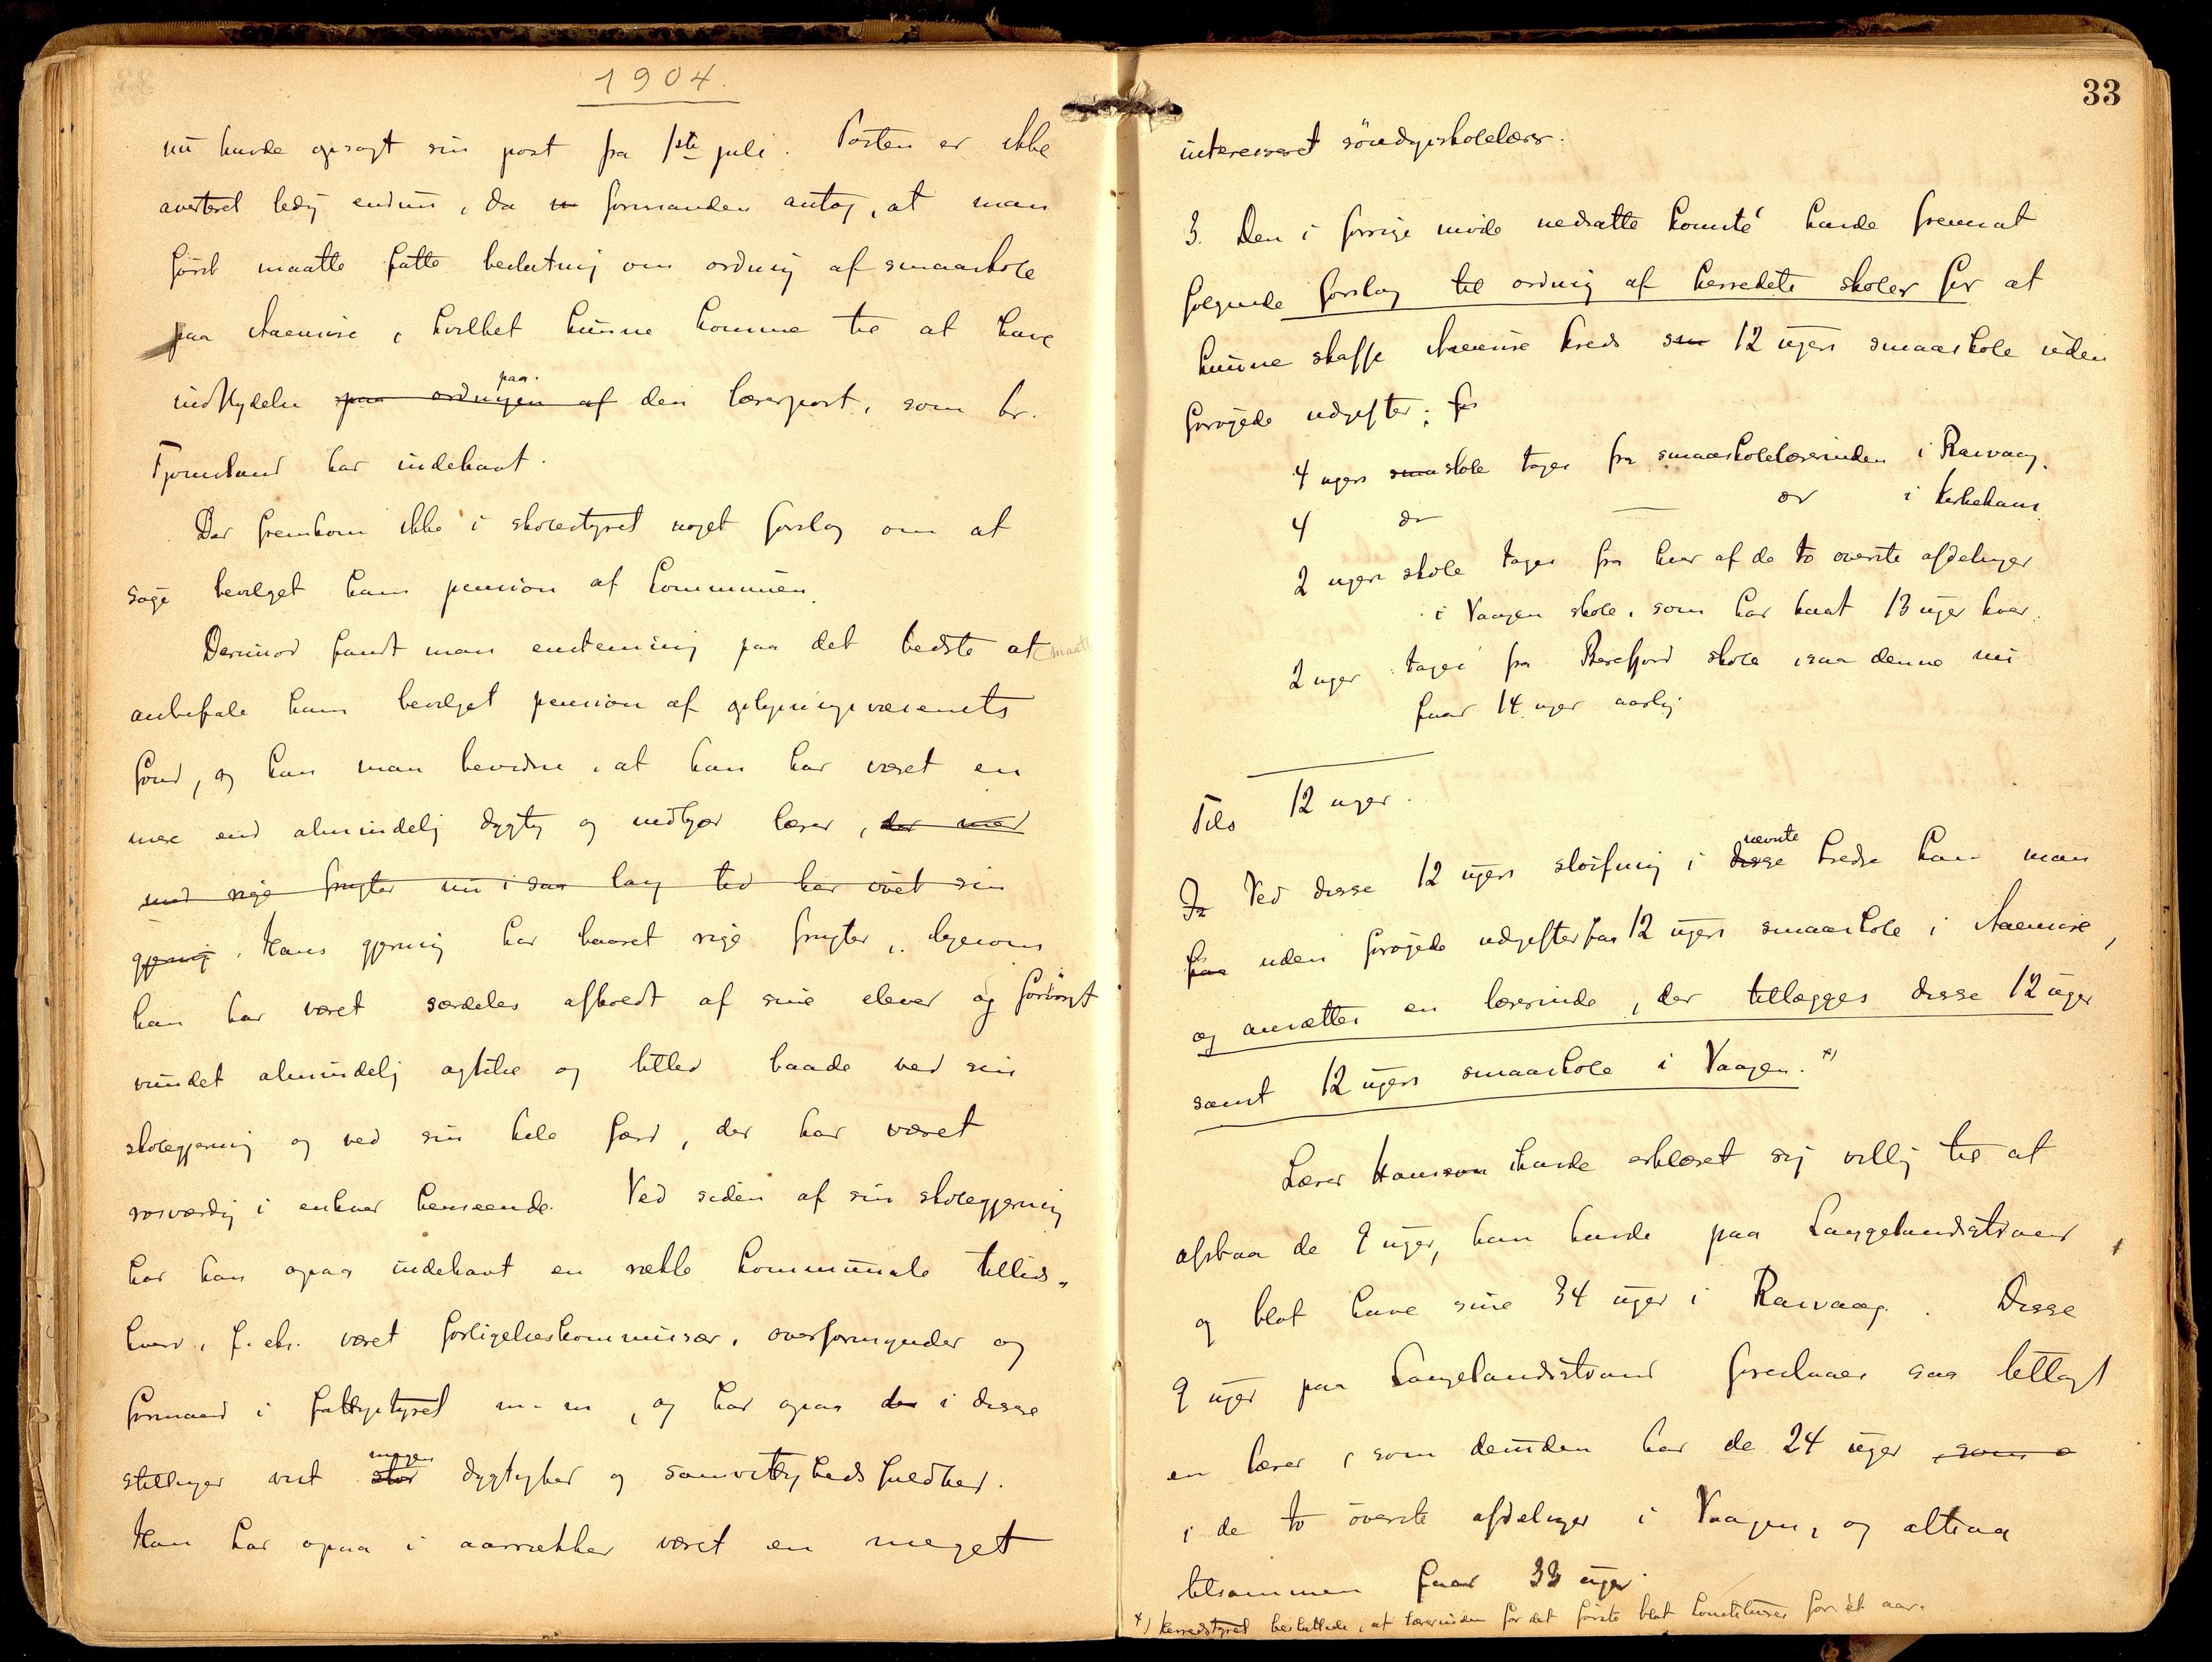 1904.
nu havde opsagt sin post fra 1ste juli. Posten er ikke
averteret ledig endnu, da formanden antog, at man
først maatte fatte beslutning om ordning af smaaskole
paa Aaemise, hvilket kunne komme til at have
indflydelse spaa ordningen af paa den lærerpost, som hr.
Fjomeland har indehavt.
Der fremkom ikke i skolestyret noget forslag om at
søge bevilget ham pension af kommunen.
Derimod fandt man enstemmig paa det bedste at maatte
anbefale ham bevilget pension af oplysningsvæsenets
fond, og kan man bevidne, at han har været en
mere end almindelig dygtig og nidkjær lærer, der med
med rige frugter nu i saa lang tid har øvet sin
gjerning. Hans gjerning har baaret rige frugter, ligesom
han har været særdeles afholdt af sine elever og forøvrigt
vundet almindelig agtelse og tillid baade ved sin
skolegjerning og ved sin hele færd, der har været
rosværdig i enhver henseende. Ved siden af sin skolegjerning
har han ogsaa indehavt en række kommunale tillids-
hverv, f. eks. været forligelseskommissær, overformynder og
formand i fattigstyret m. m., og har ogsaa der i disse
stillinger vist stor megen dygtighed og samvittighedsfuldhed.
Han har ogsaa i aarrækker været en meget
33
interesseret søndagsskolelærer.
3. Den i forrige møde nedsatte komité havde fremsat
følgende forslag til ordning af herredets skoler for at
kunne skaffe Aaemise kreds sin 12 ugers smaaskole uden
forøgede udgifter: for
4 ugers smaaskole tages fra smaaskolelærerinden i Rasvaag.
4 do — do i Kirkehavn
2 ugers skole tages fra hver af de to øverste afdelinger
i Vaagen skole, som har havt 13 uger hver.
2 uger tages fra Berefjord skole, saa denne nu
faar 14 uger aarlig
Tils 12 uger.
Ja Ved disse 12 ugers sløifning i disse nævnte kredse kan man
faa uden forøgede udgifter faa 12 ugers smaaskole i Aaemise,
og ansættes en lærerinde, der tillægges disse 12 uger
samt 12 ugers smaaskole i Vaagen. *)
Lærer Hansson havde erklæret sig villig til at
afstaa de 9 uger, han havde paa Langelandsstrand,
og blot have sine 34 uger i Rasvaag. Disse
9 uger paa Langelandsstrand foreslaaes saa tillagt
en lærer, som desuden har de 24 uger, som
i de to øverste afdelinger i Vaagen, og altsaa
tilsammen faar 33 uger.
*) Herredstyret besluttede, at lærerinden for det første blot konstitueres for et aar.